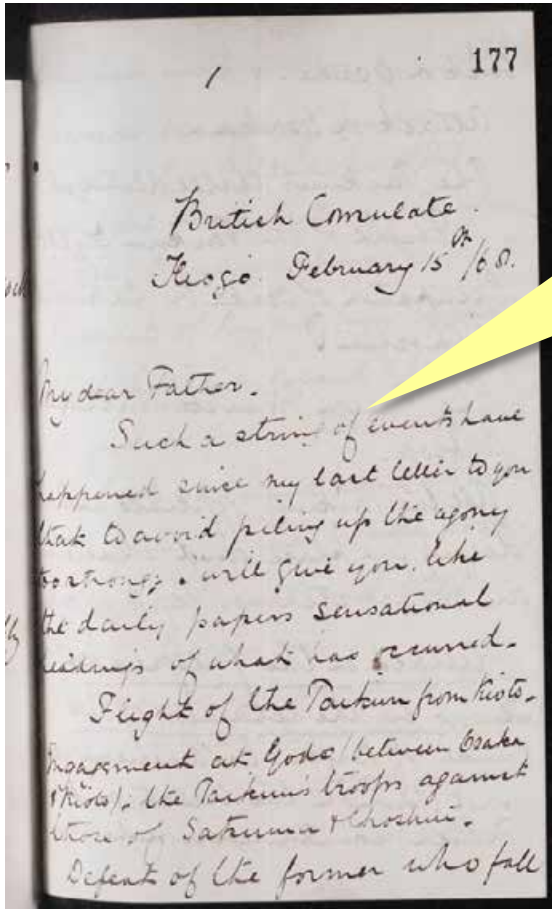 177
1
British Consulate.
Hiogo. February 15th/68.
My dear Father.
Such a string of events have
happened since my last letter to you
that to avoid piling up the agony
too strong, will give you, like
the daily papers sensational
headings of what has occurred.
Flight of the Taikun from Kioto.
Engagement at Yodo (between Osaka
& Kioto). the Taikun's troops against
those of Satsuma & Choshiu.
Defeat of the former who fall